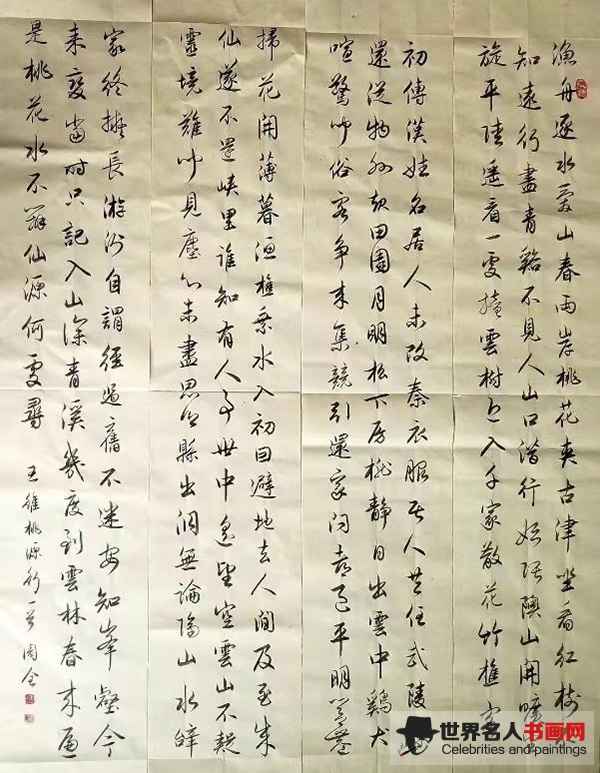 漁舟逐水愛山春兩岸桃花夾古津坐看紅樹
知遠行盡青谿不見人山口潛行始隈隩山開曠
旋平陸遙看一處攢雲樹近入千家散花竹樵客
初傳漢姓名居人未改秦衣服居人共住武陵源
還從物外起田園月明松下房櫳靜日出雲中鷄犬
喧驚聞俗客爭來集競引還家問都邑平明閭巷
掃花開薄暮漁樵乘水入初因避地去人間及至成
仙遂不還峽里誰知有人事世中遙望空雲山不疑
靈境難聞見塵心未盡思鄉縣出洞無論隔山水辭
家終擬長游衍自謂經過舊不迷安知峯壑今
來變當時只記入山深青溪幾度到雲林春來遍
是桃花水不辨仙源何處尋 王維桃源行一首 周全
世界名人书画网
Celebrities and paintings